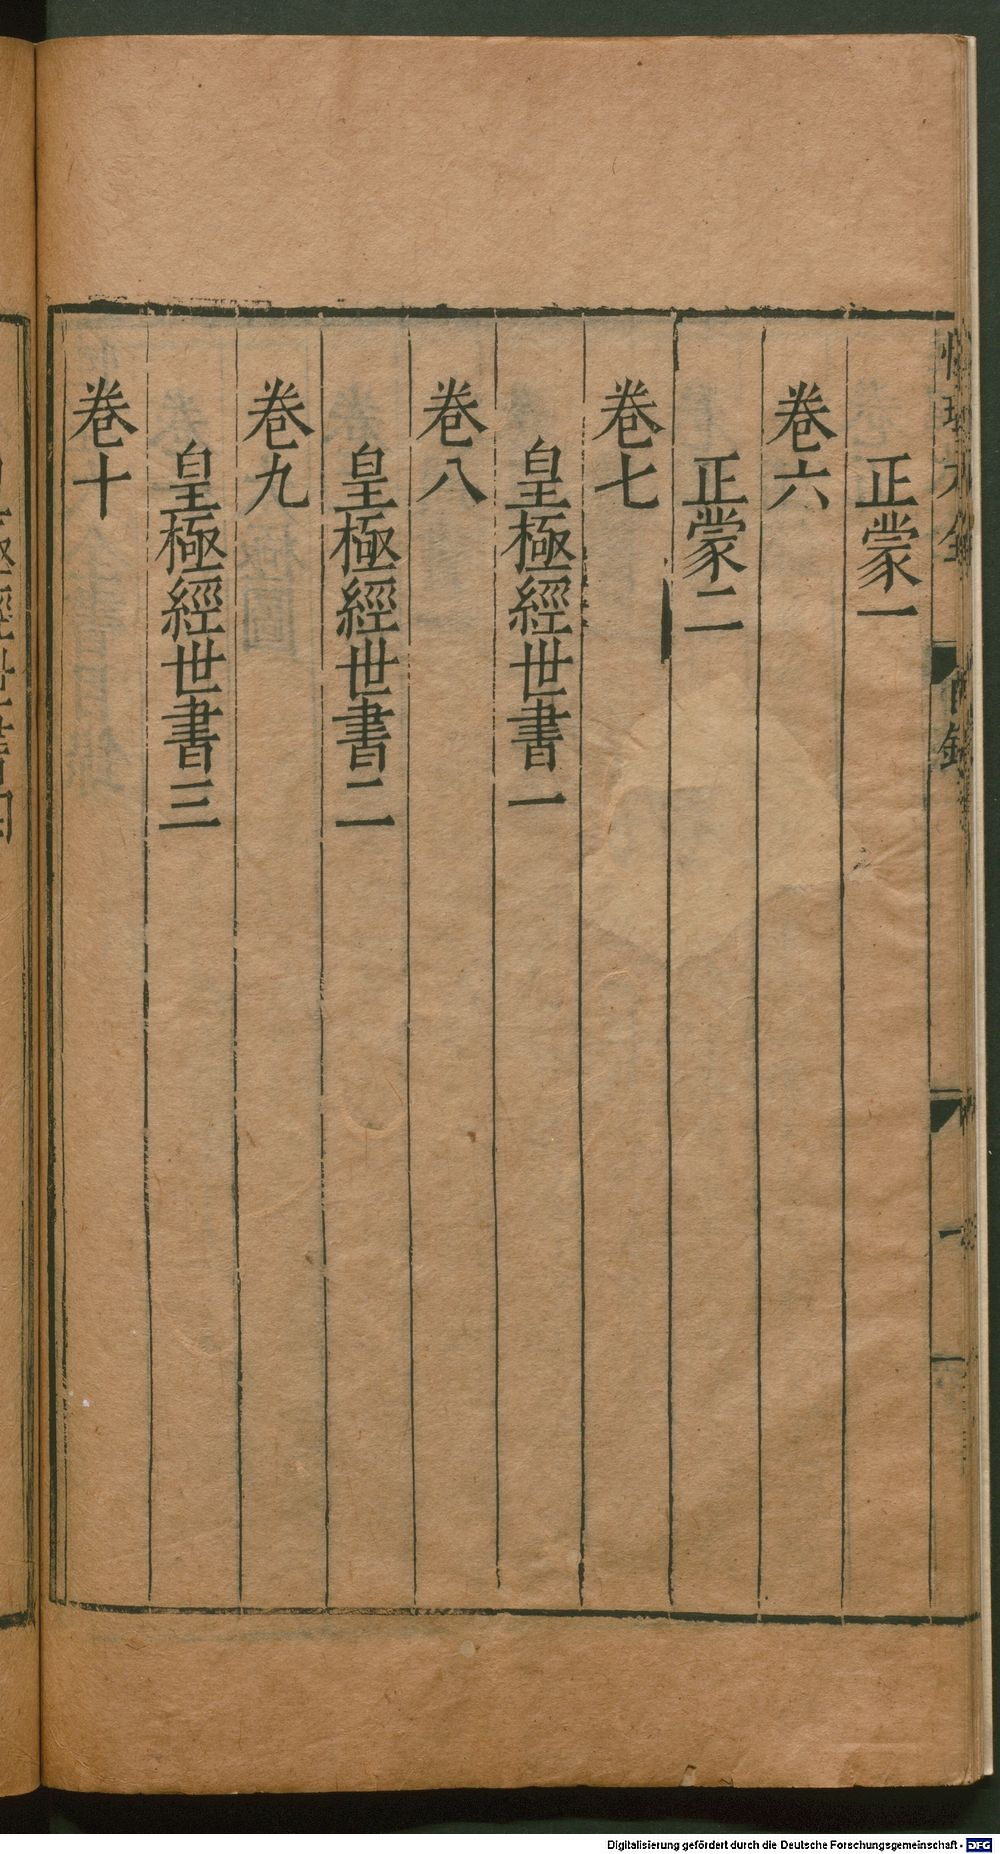 正蒙一
卷六
正蒙二
卷七
皇極經世書一
卷八
皇極經世書二
卷九
皇極經世書三
卷十
Digitalisierung gefördert durch die Deutsche Forschungsgemeinschaft - DFG